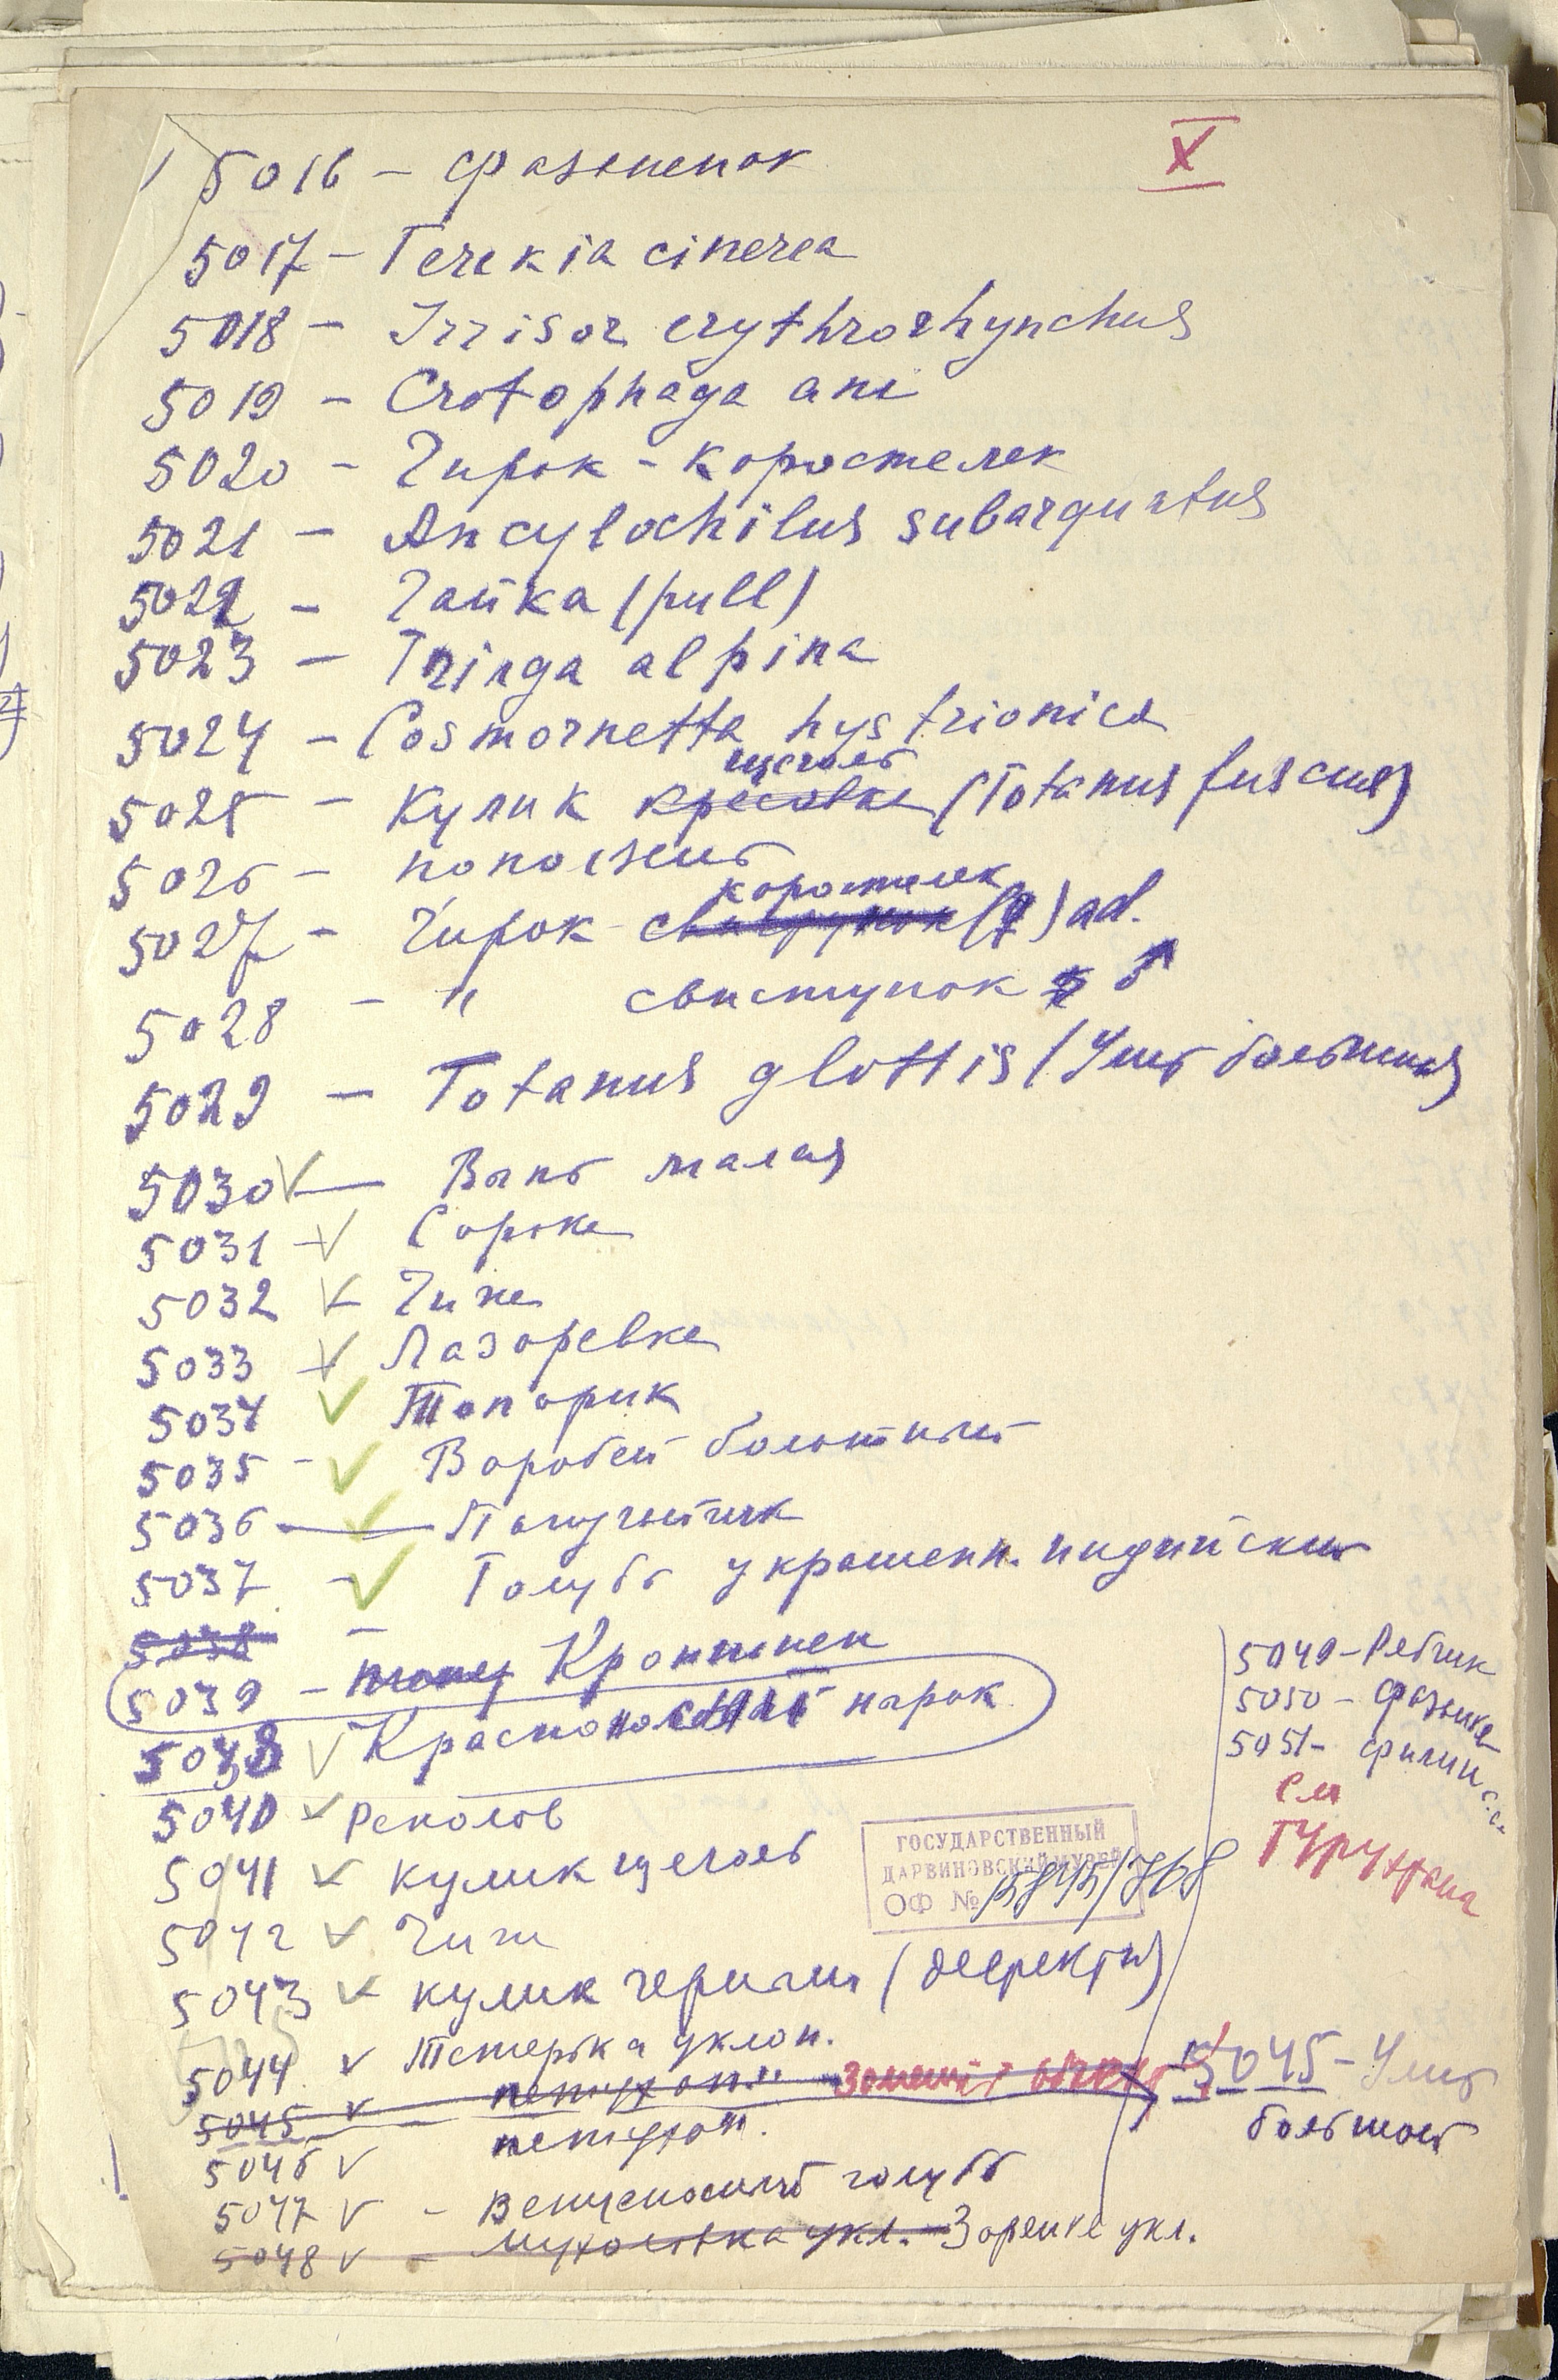 X
5016 - фазаненок
5017 - Terekia cinerea
5018 - Irrisor erythrorhynchus
5019 - Crotophaga ani
5020 - Чирок - коростелек
5021 - Ancylochilus subarquatus
5022 - Чайка (pull)
5023 - Tringa alpina
5024 - Cosmornetta hystrionica
щеголь
5025 - Кулик (Totanus fuscus)
5026 - поползень
коростелек
5027 - Чирок - свистунок (♀) ad.
5028 - " свистунок ♂
5029 - Totanus glottis (Улит большой)
5030 V — Выпь малая
5031 - V Сорока
5032 V Чиж
5033 V Лазоревка
5034 V Топорик
5035 - V Воробей болотный
5036 — V Погуменник
5037 - V Голубь украшенн. индийский
5038 -
5039 - Кроншнеп
5038 V Красноносый нырок
5040 V Реполов
5041 V кулик щеголь
5042 V Чиж
5043 V кулик черныш (дефектн)
5044 V Тетерька уклон.
5045 V петушок
5046 V петушок.
5047 V - Венценосный голубь
5048 V - мухоловка укл. - Зорянка укл.
5049 - Рябчик
5050 - фазанка
5051 - филин
см
Турухтана
ГОСУДАРСТВЕННЫЙ
ДАРВИНОВСКИЙ МУЗЕЙ
ОФ №
5045 - Улит
большой